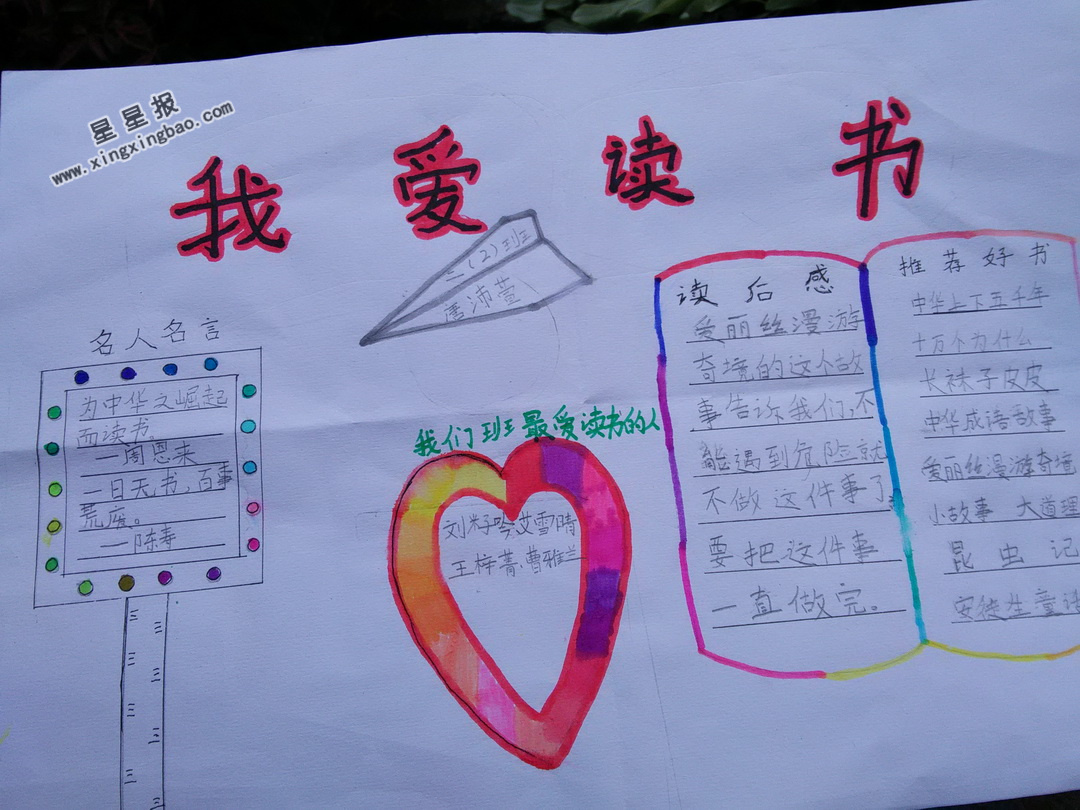 星星报
www.xingxingbao.com
我爱读书
三(2)班
唐沛萱
名人名言
为中华之崛起
而读书。
一周恩来
一日无书,百事
荒废。
一陈寿
我们班最爱读书的人
刘籽吟 艾雪晴
王梓菁 曹雅兰
读后感
爱丽丝漫游
奇境的这个故
事告诉我们,不
能遇到危险就
不做这件事了,
要把这件事
一直做完。
推荐好书
中华上下五千年
十万个为什么
长袜子皮皮
中华成语故事
爱丽丝漫游奇境
小故事 大道理
昆虫记
安徒生童话